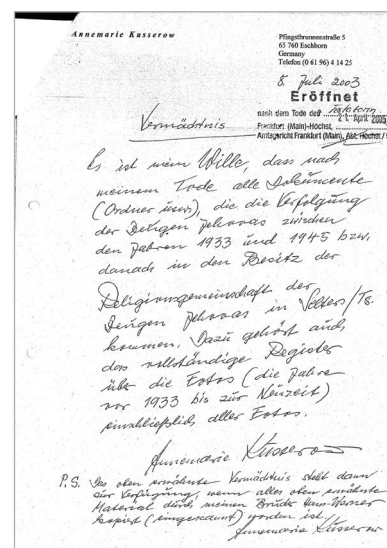 Annemarie Kusserow
Pfingstbrunnenstraße 5
65 760 Eschborn
Germany
Telefon (0 61 96) 4 14 25
8. Juli 2003
Eröffnet
nach dem Tode der
21. April 2005
Frankfurt (Main)-Höchst,
Amtsgericht Frankfurt (Main), Abt. Höchst
Vermächtnis
Es ist mein Wille, dass nach
meinem Tode alle Dokumente
(Ordner usw), die die Verfolgung
der Zeugen Jehovas zwischen
den Jahren 1933 und 1945 bzw.
danach in den Besitz der
Religionsgemeinschaft der
Zeugen Jehovas in Selters/Ts.
kommen. Dazu gehört auch
das vollständige Register
über die Fotos (die Jahre
vor 1933 bis zur Neuzeit)
einschließlich aller Fotos.
Annemarie Kusserow
P.S. Das oben erwähnte Vermächtnis steht dann
zur Verfügung, wenn alles oben erwähnte
Material durch meinen Bruder Hans-Werner
kopiert (eingescannt) worden ist.
Annemarie Kusserow